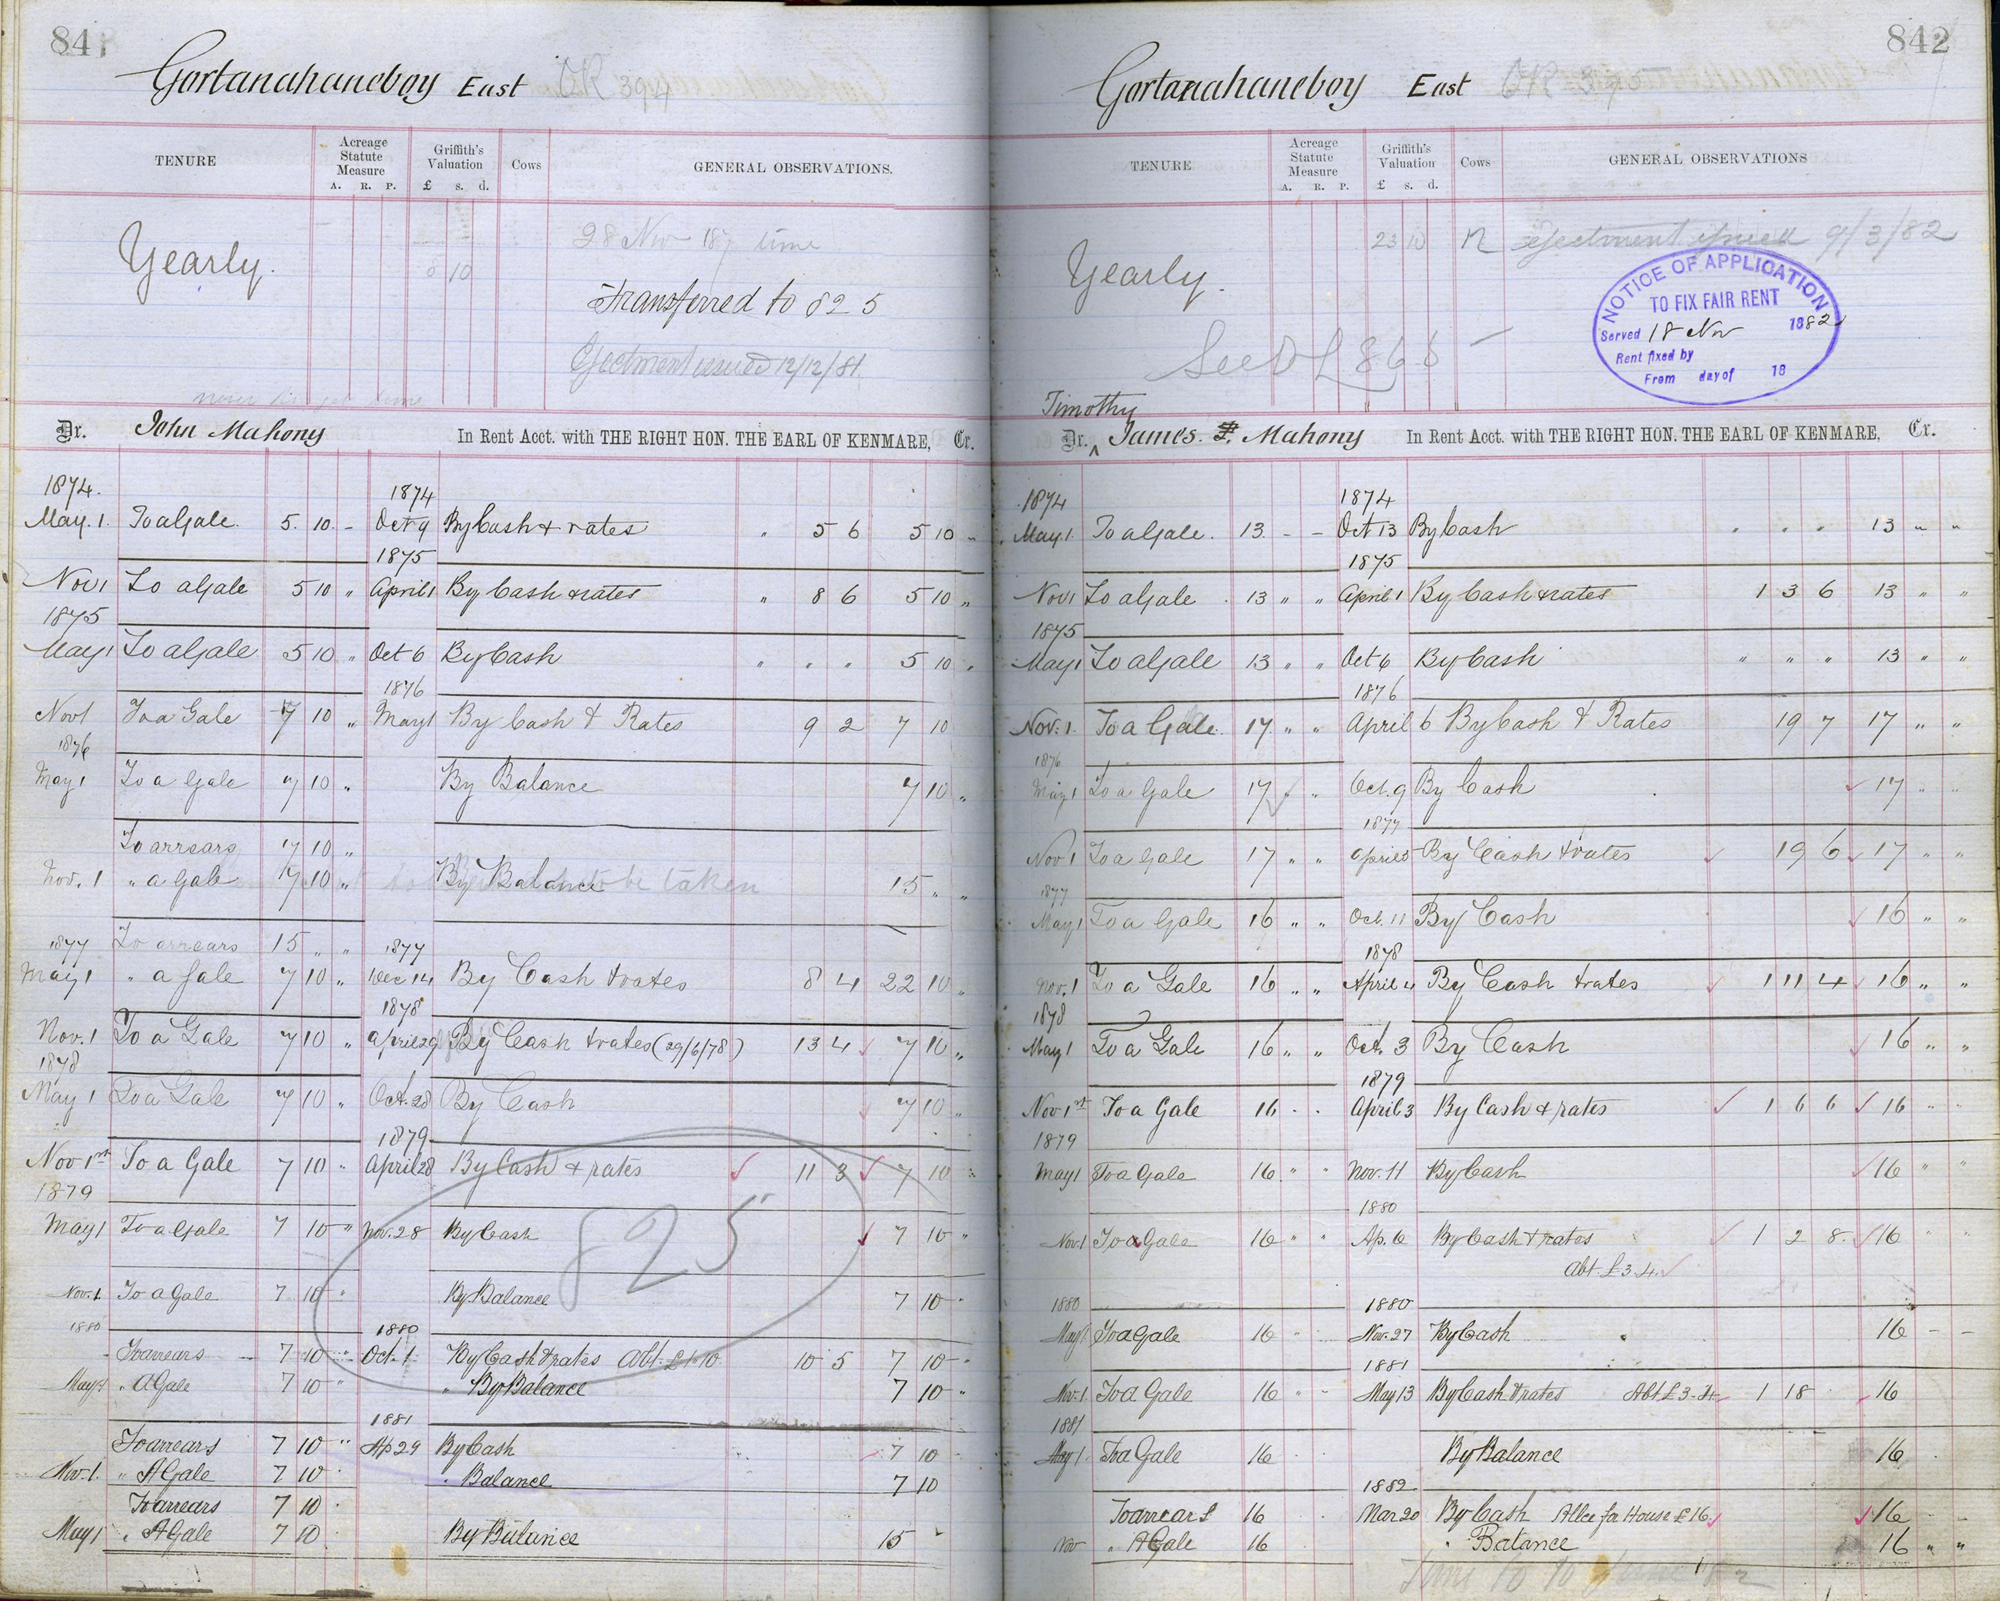 841
Gortanahaneboy East OR 394
TENURE
Acreage Statute Measure
A. R. P.
Griffith's Valuation
£ s. d.
Cows
GENERAL OBSERVATIONS.
Yearly.
10
28 Nov 187 time
Transferred to 825
Ejectment issued 12/12/81
Dr. John Mahony In Rent Acct. with THE RIGHT HON. THE EARL OF KENMARE, Cr.
1874. 1874
May. 1. To a Gale. 5. 10. - Oct 9 By Cash & rates " 5 6 5 10 "
1875
Nov 1 To a Gale 5 10 " April 1 By Cash & rates " 8 6 5 10 "
1875
May 1 To a Gale 5 10 " Oct 6 By Cash " " " 5 10 "
1876
Nov 1 To a Gale 7 10 " May 1 By Cash & Rates 9 2 7 10
1876
May 1 To a Gale 7 10 " By Balance 7 10 "
To arrears 7 10 "
Nov. 1 " a Gale 7 10 " By Balance 15 " "
1877 To arrears 15 " " 1877
May 1 " a Gale 7 10 " Dec 14 By Cash & rates 8 4 22 10 "
1878
Nov. 1 To a Gale 7 10 " April 29 By Cash & rates (29/6/78) 13 4 7 10 "
1878
May 1 To a Gale 7 10 " Oct. 28 By Cash 7 10 "
1879
Nov 1st To a Gale 7 10 " April 28 By Cash & rates 11 3 7 10 "
1879
May 1 To a Gale 7 10 " Nov. 28 By Cash 7 10 "
825
Nov. 1 To a Gale 7 10 " By Balance 7 10 "
1880 1880
To arrears 7 10 " Oct. 1 By Cash & rates Abt. £1.10 10 5 7 10 "
May 1 " A Gale 7 10 " " By Balance 7 10 "
1881
To arrears 7 10 " Ap 29 By Cash 7 10
Nov. 1. " A Gale 7 10 " " Balance 7 10
To arrears 7 10
May 1 " A Gale 7 10 By Balance 15
842
Gortanahaneboy East OR 395
TENURE
Acreage Statute Measure
A. R. P.
Griffith's Valuation
£ s. d.
Cows
GENERAL OBSERVATIONS
Yearly.
23 10
Ejectment issued 9/3/82
NOTICE OF APPLICATION
TO FIX FAIR RENT
Served 18 Nov 1882
Rent fixed by
From day of 18
Timothy
Dr. James. Mahony In Rent Acct. with THE RIGHT HON. THE EARL OF KENMARE, Cr.
1874 1874
May 1. To a Gale. 13 - - Oct 13 By Cash " " " 13 " "
1875
Nov 1 To a Gale 13 " " April 1 By Cash & rates 1 3 6 13 " "
1875
May 1 To a Gale 13 " " Oct 6 By Cash " " " 13 " "
1876
Nov. 1. To a Gale 17 " " April 6 By Cash & Rates 19 7 17 " "
1876
May 1 To a Gale 17 " " Oct. 9 By Cash 17 " "
1877
Nov 1 To a Gale 17 " " April 5 By Cash & rates 19 6 17 " "
1877
May 1 To a Gale 16 " " Oct. 11 By Cash 16 " "
1878
Nov. 1 To a Gale 16 " " April 4 By Cash & rates 1 11 4 16 " "
1878
May 1 To a Gale 16 " " Oct. 3 By Cash 16 " "
1879
Nov 1st To a Gale 16 " " April 3 By Cash & rates 1 6 6 16 " "
1879
May 1 To a Gale 16 " " Nov. 11 By Cash 16 " "
1880
Nov 1 To a Gale 16 " " Ap. 6 By Cash & rates 1 2 8 16 " "
Abt. £3.4.
1880 1880
May 1 To a Gale 16 " Nov. 27 By Cash 16 - -
1881
Nov. 1 To a Gale 16 " - May 13 By Cash & rates Abt £3-4 1 18 16
1881
May 1 To a Gale 16 By Balance 16
1882
To arrears 16 Mar 20 By Cash Allce for House £16 16
Nov " A Gale 16 " Balance 16 " "
Time to 10 June 82